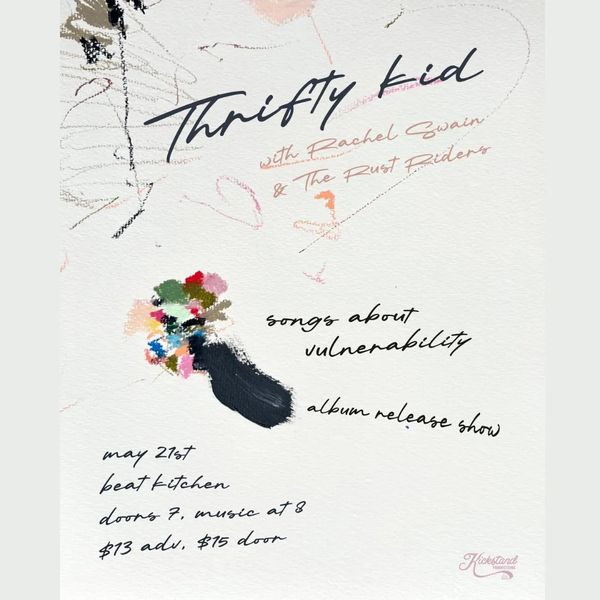 Thrifty kid
with Rachel Swain
& The Rust Riders
songs about
vulnerability
album release show
may 21st
beat kitchen
doors 7, music at 8
$13 adv, $15 door
Kickstand
PRODUCTIONS